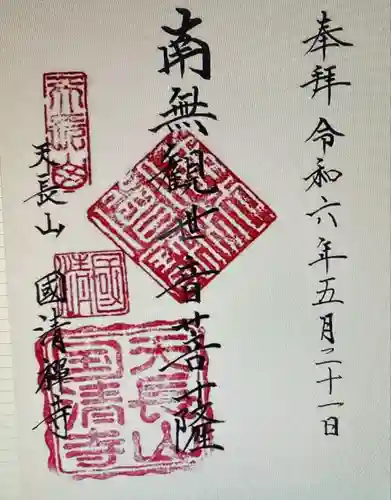 奉拜 令和六年五月二十一日
南無観世音菩薩
天長山 國清禪寺
天長山
國清
天長山
國清寺